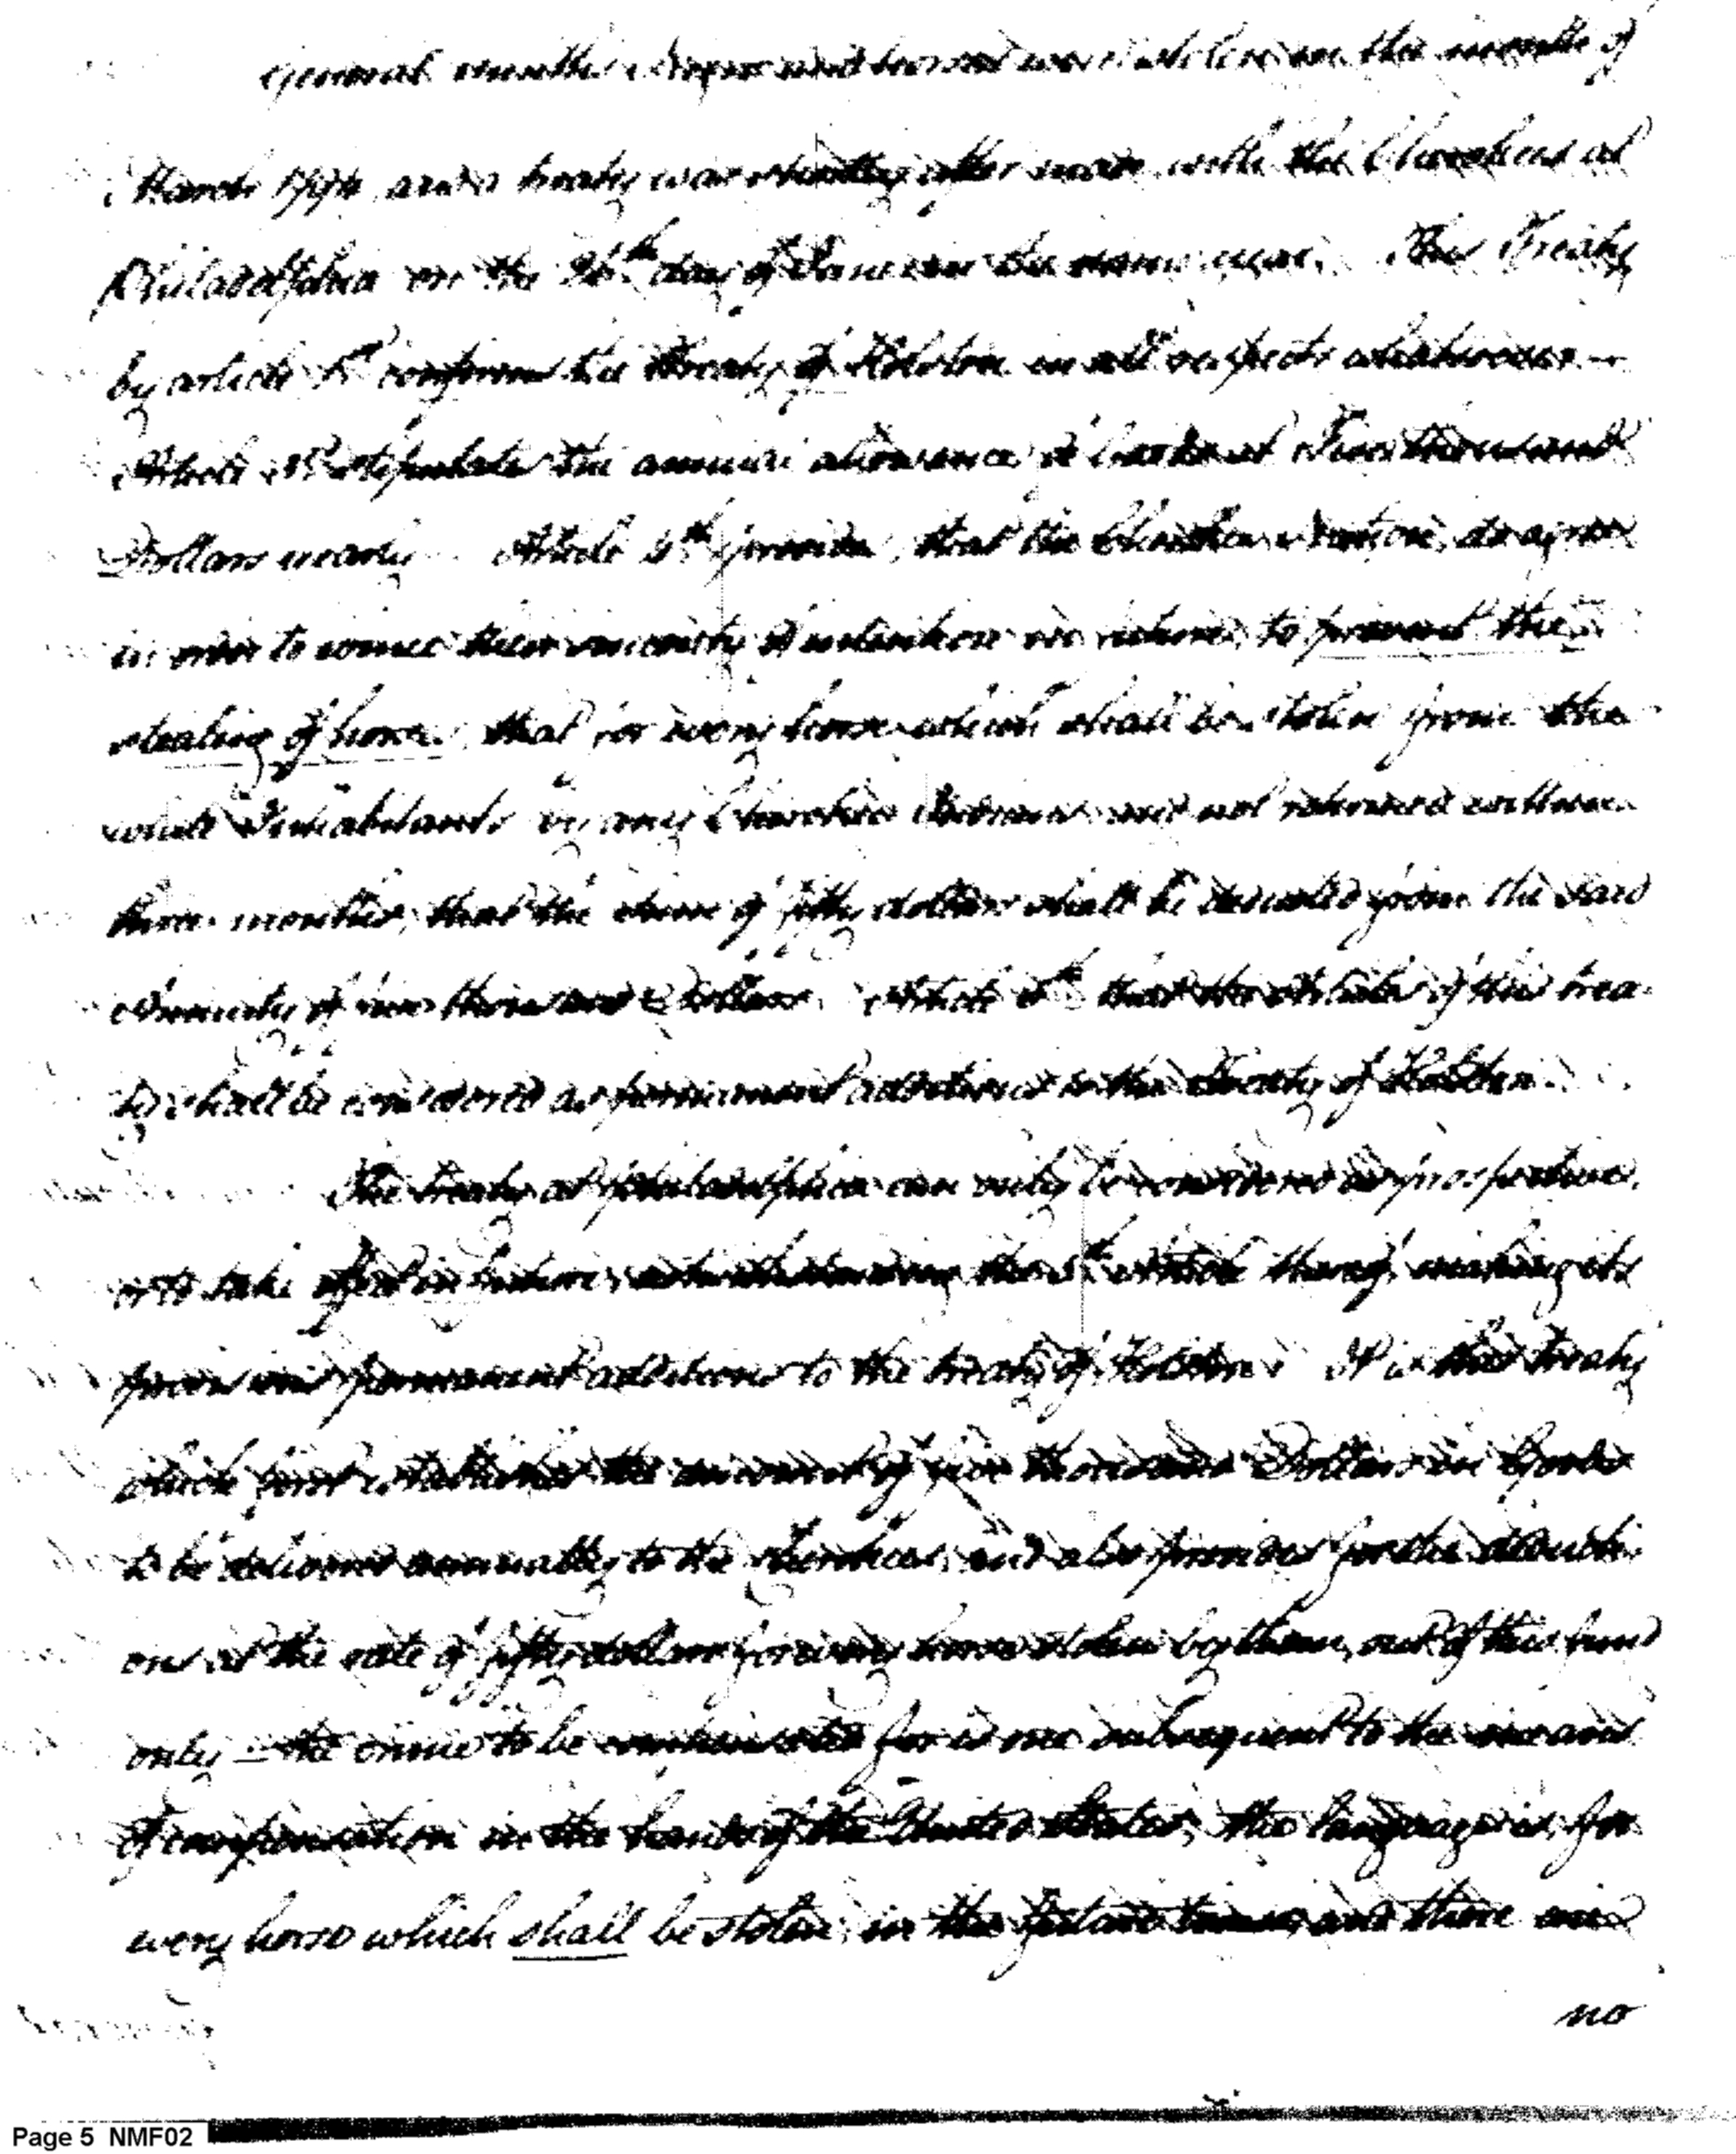 General Smith's Negroes and horses were stolen in the month of
March 1794, and a treaty was shortly after made with the Cherokees at
Philadelphia on the 26th day of June in the same year. This Treaty
by article 1st confirms the Treaty of Holston in all respects whatsoever —
Article 3d stipulates the annual allowance of Goods at Five thousand
Dollars yearly. Article 4th provides, that the Cherokee Nation, do agree
in order to evince their sincerity of intention in future, to prevent the
stealing of horses, that for every horse which shall be stolen from the
white Inhabitants by any Cherokee Indians and not returned within
three months, that the sum of fifty dollars shall be deducted from the said
Annuity of five thousand Dollars. Article 5th that the articles of this trea-
ty shall be considered as permanent additions to the Treaty of Holston.
The treaty at philadelphia can only be considered as prospective,
or to take effect in future, notwithstanding the 5th article thereof, making its
provisions permanent additions to the treaty of Holston. It is this treaty
which first establishes the amount of five thousand Dollars in Goods
to be delivered annually to the cherokees, and also provides for the deducti-
ons at the rate of fifty dollars for every horse stolen by them, out of this fund
only — the crime to be compensated for is one subsequent to the means
of compensation in the hands of the United States, the language is, for
every horse which shall be stolen, in the future tense, and there are
no
Page 5 NMF02